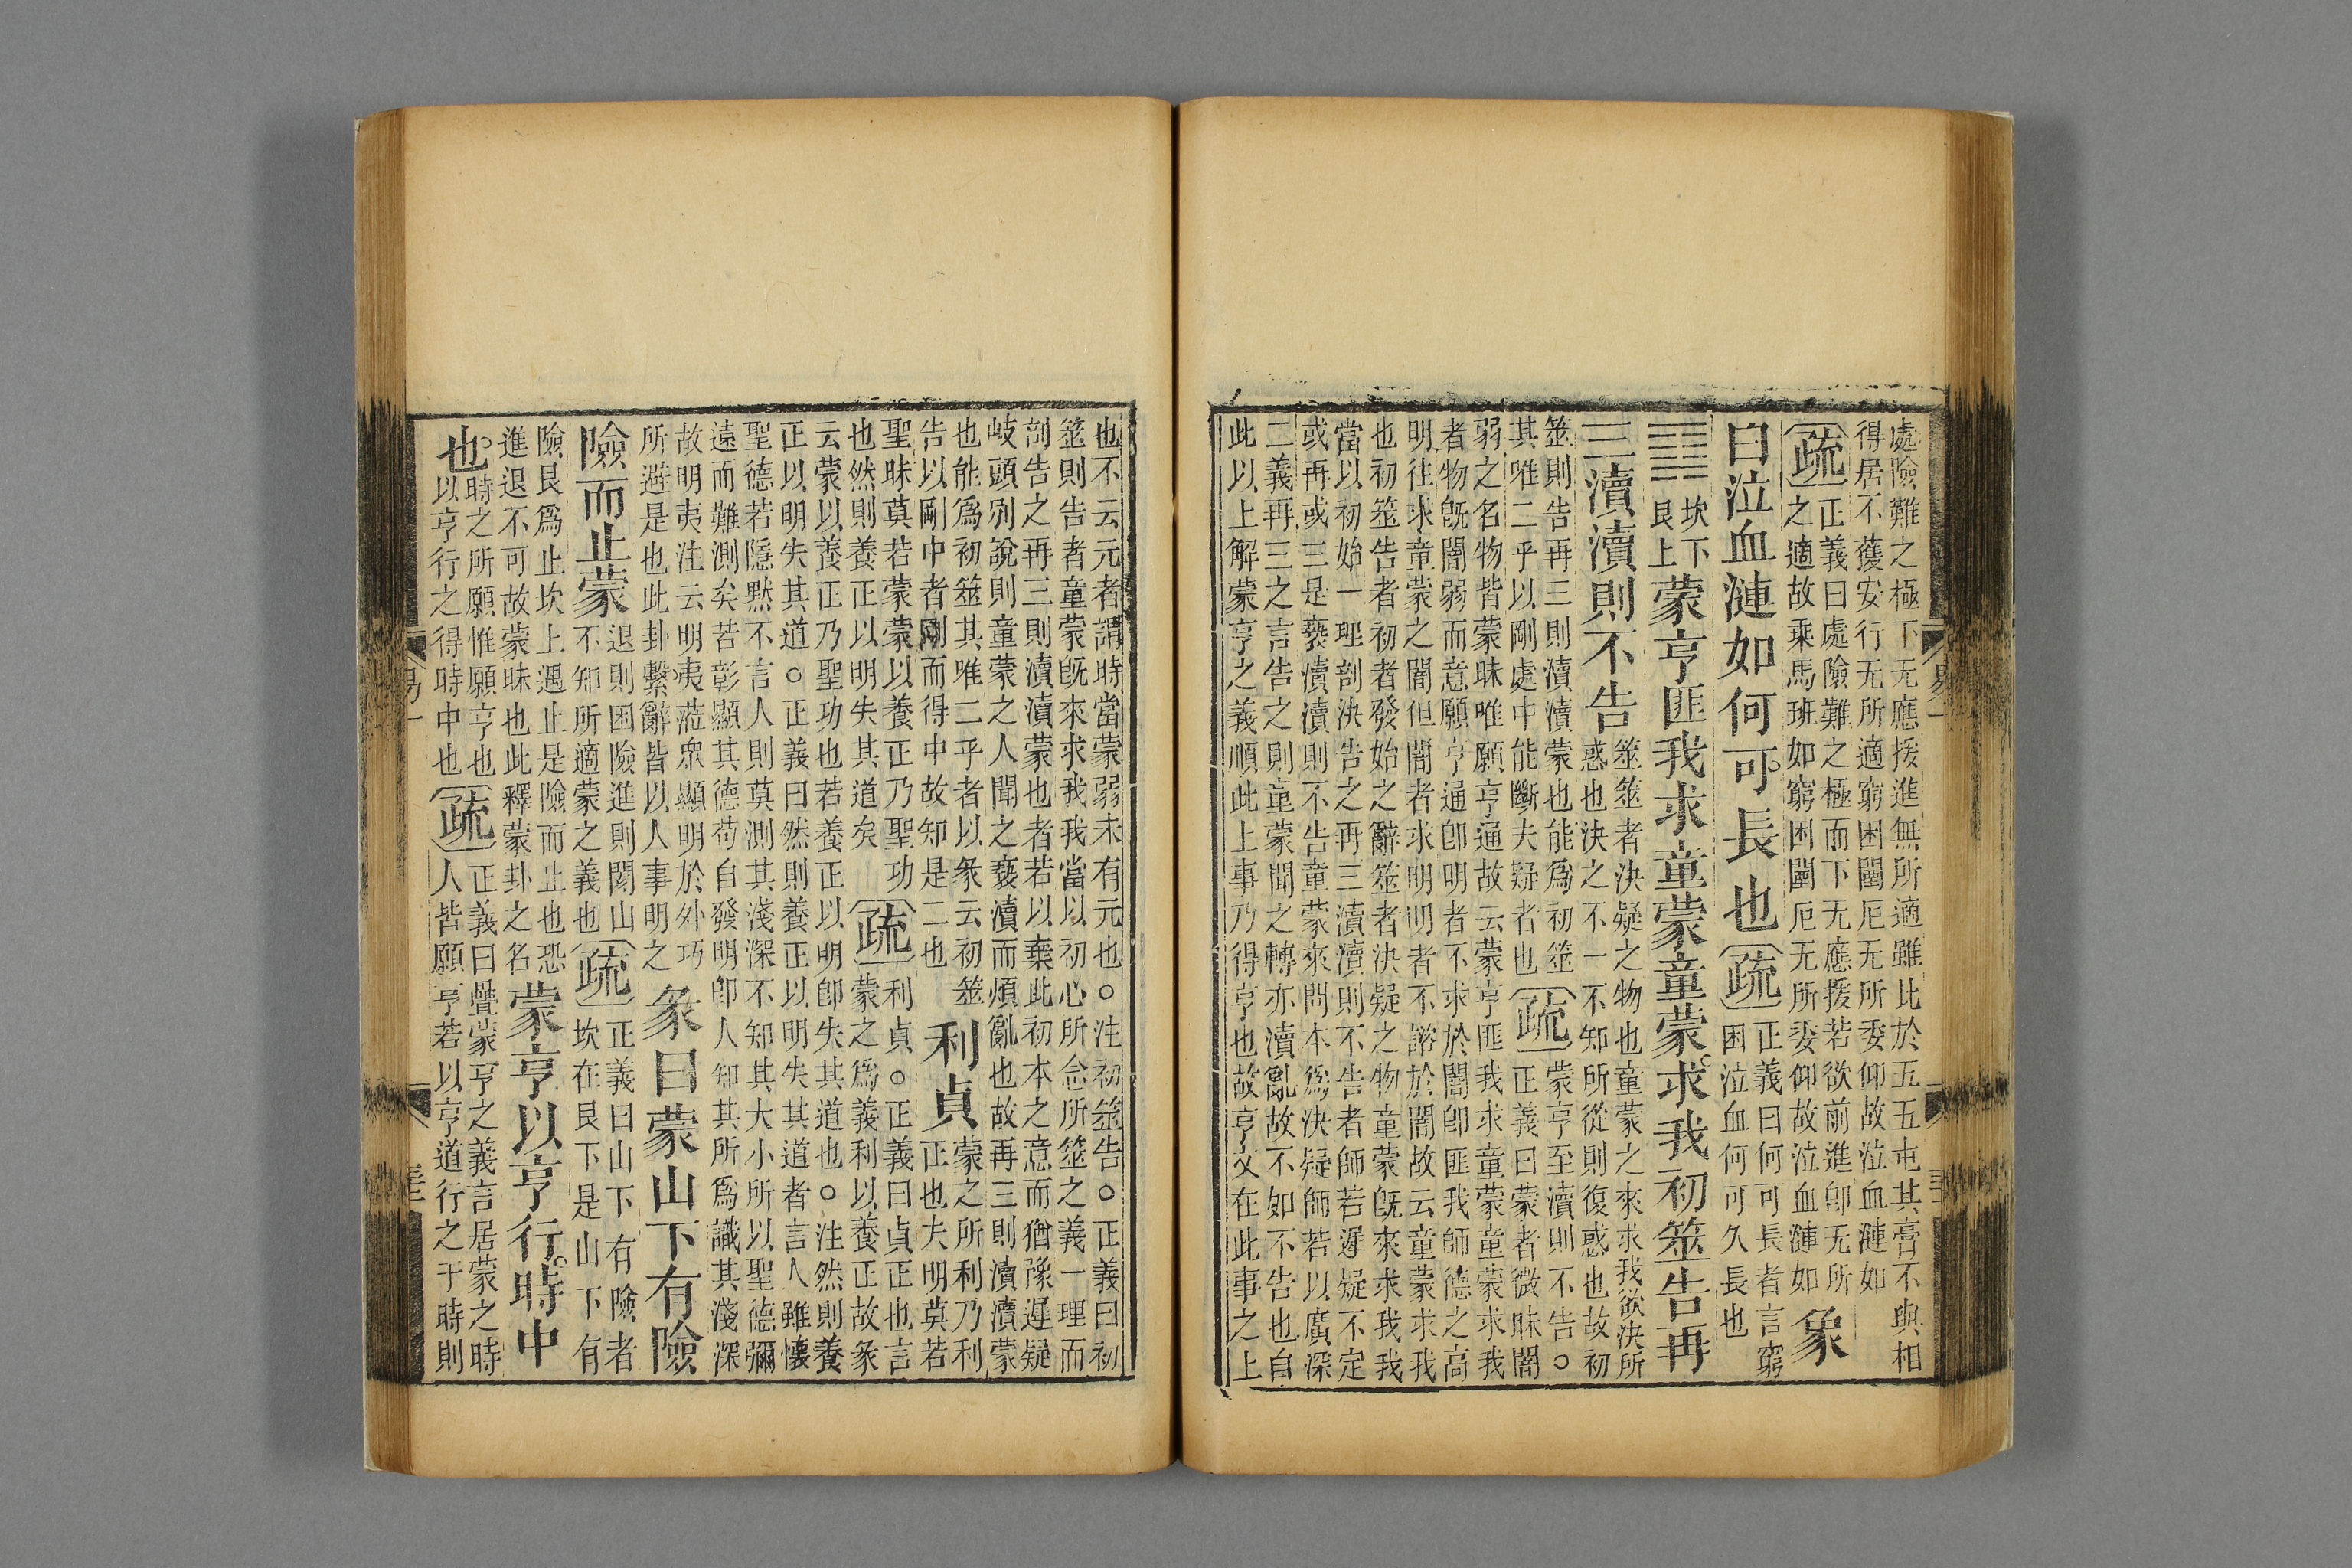 處險難之極下无應援進無所適雖比於五五屯其膏不與相
得居不獲安行无所適窮困闉厄无所委仰故泣血漣如
疏 正義曰處險難之極而下无應援若欲前進即无所
之適故乗馬班如窮困闉厄无所委仰故泣血漣如 象
曰泣血漣如何可長也 疏 正義曰何可長者言窮
困泣血何可久長也
䷃ 坎下
艮上 蒙亨匪我求童蒙童蒙求我初筮告再
三瀆瀆則不告 筮筮者決疑之物也童蒙之來求我欲決所
惑也決之不一不知所從則復惑也故初
筮則告再三則瀆瀆蒙也能爲初筮
其唯二乎以剛處中能斷夫疑者也 疏 蒙亨至瀆則不告○
正義曰蒙者微昧闇
弱之名物皆蒙昧唯願亨通故云蒙亨匪我求童蒙童蒙求我
者物旣闇弱而意願亨通卽明者不求於闇卽匪我師德之高
明往求童蒙之闇但闇者求明明者不諮於闇故云童蒙求我
也初筮告者初者發始之辭筮者決疑之物童蒙旣來求我我
當以初始一理剖決告之再三瀆瀆則不告者師若遲疑不定
或再或三是褻瀆瀆則不告童蒙來問本爲決疑師若以廣深
二義再三之言告之則童蒙聞之轉亦瀆亂故不如不告也自
此以上解蒙亨之義順此上事乃得亨也故亨文在此事之上
也不云元者謂時當蒙弱未有元也○注初筮告○正義曰初
筮則告者童蒙旣來求我我當以初心所念所筮之義一理而
剖告之再三則瀆瀆蒙也者若以棄此初本之意而猶豫遲疑
岐頭別說則童蒙之人聞之褻瀆而煩亂也故再三則瀆瀆蒙
也能爲初筮其唯二乎者以彖云初筮
告以剛中者剛而得中故知是二也 利貞 蒙之所利乃利
正也夫明莫若
聖昧莫若蒙蒙以養正乃聖功
也然則養正以明失其道矣 疏 利貞○正義曰貞正也言
蒙之爲義利以養正故彖
云蒙以養正乃聖功也若養正以明卽失其道也○注然則養
正以明失其道○正義曰然則養正以明失其道者言人雖懷
聖德若隱默不言人則莫測其淺深不知其大小所以聖德彌
遠而難測矣若彰顯其德苟自發明卽人知其所爲識其淺深
故明夷注云明夷蒞衆顯明於外巧
所避是也此卦繫辭皆以人事明之 彖曰蒙山下有險
險而止蒙 退則困險進則閡山
不知所適蒙之義也 疏 正義曰山下有險者
坎在艮下是山下有
險艮爲止坎上遇止是險而止也恐
進退不可故蒙昧也此釋蒙卦之名 蒙亨以亨行時中
也 時之所願惟願亨也
以亨行之得時中也 疏 正義曰疊蒙亨之義言居蒙之時
人皆願亨若以亨道行之于時則
易一